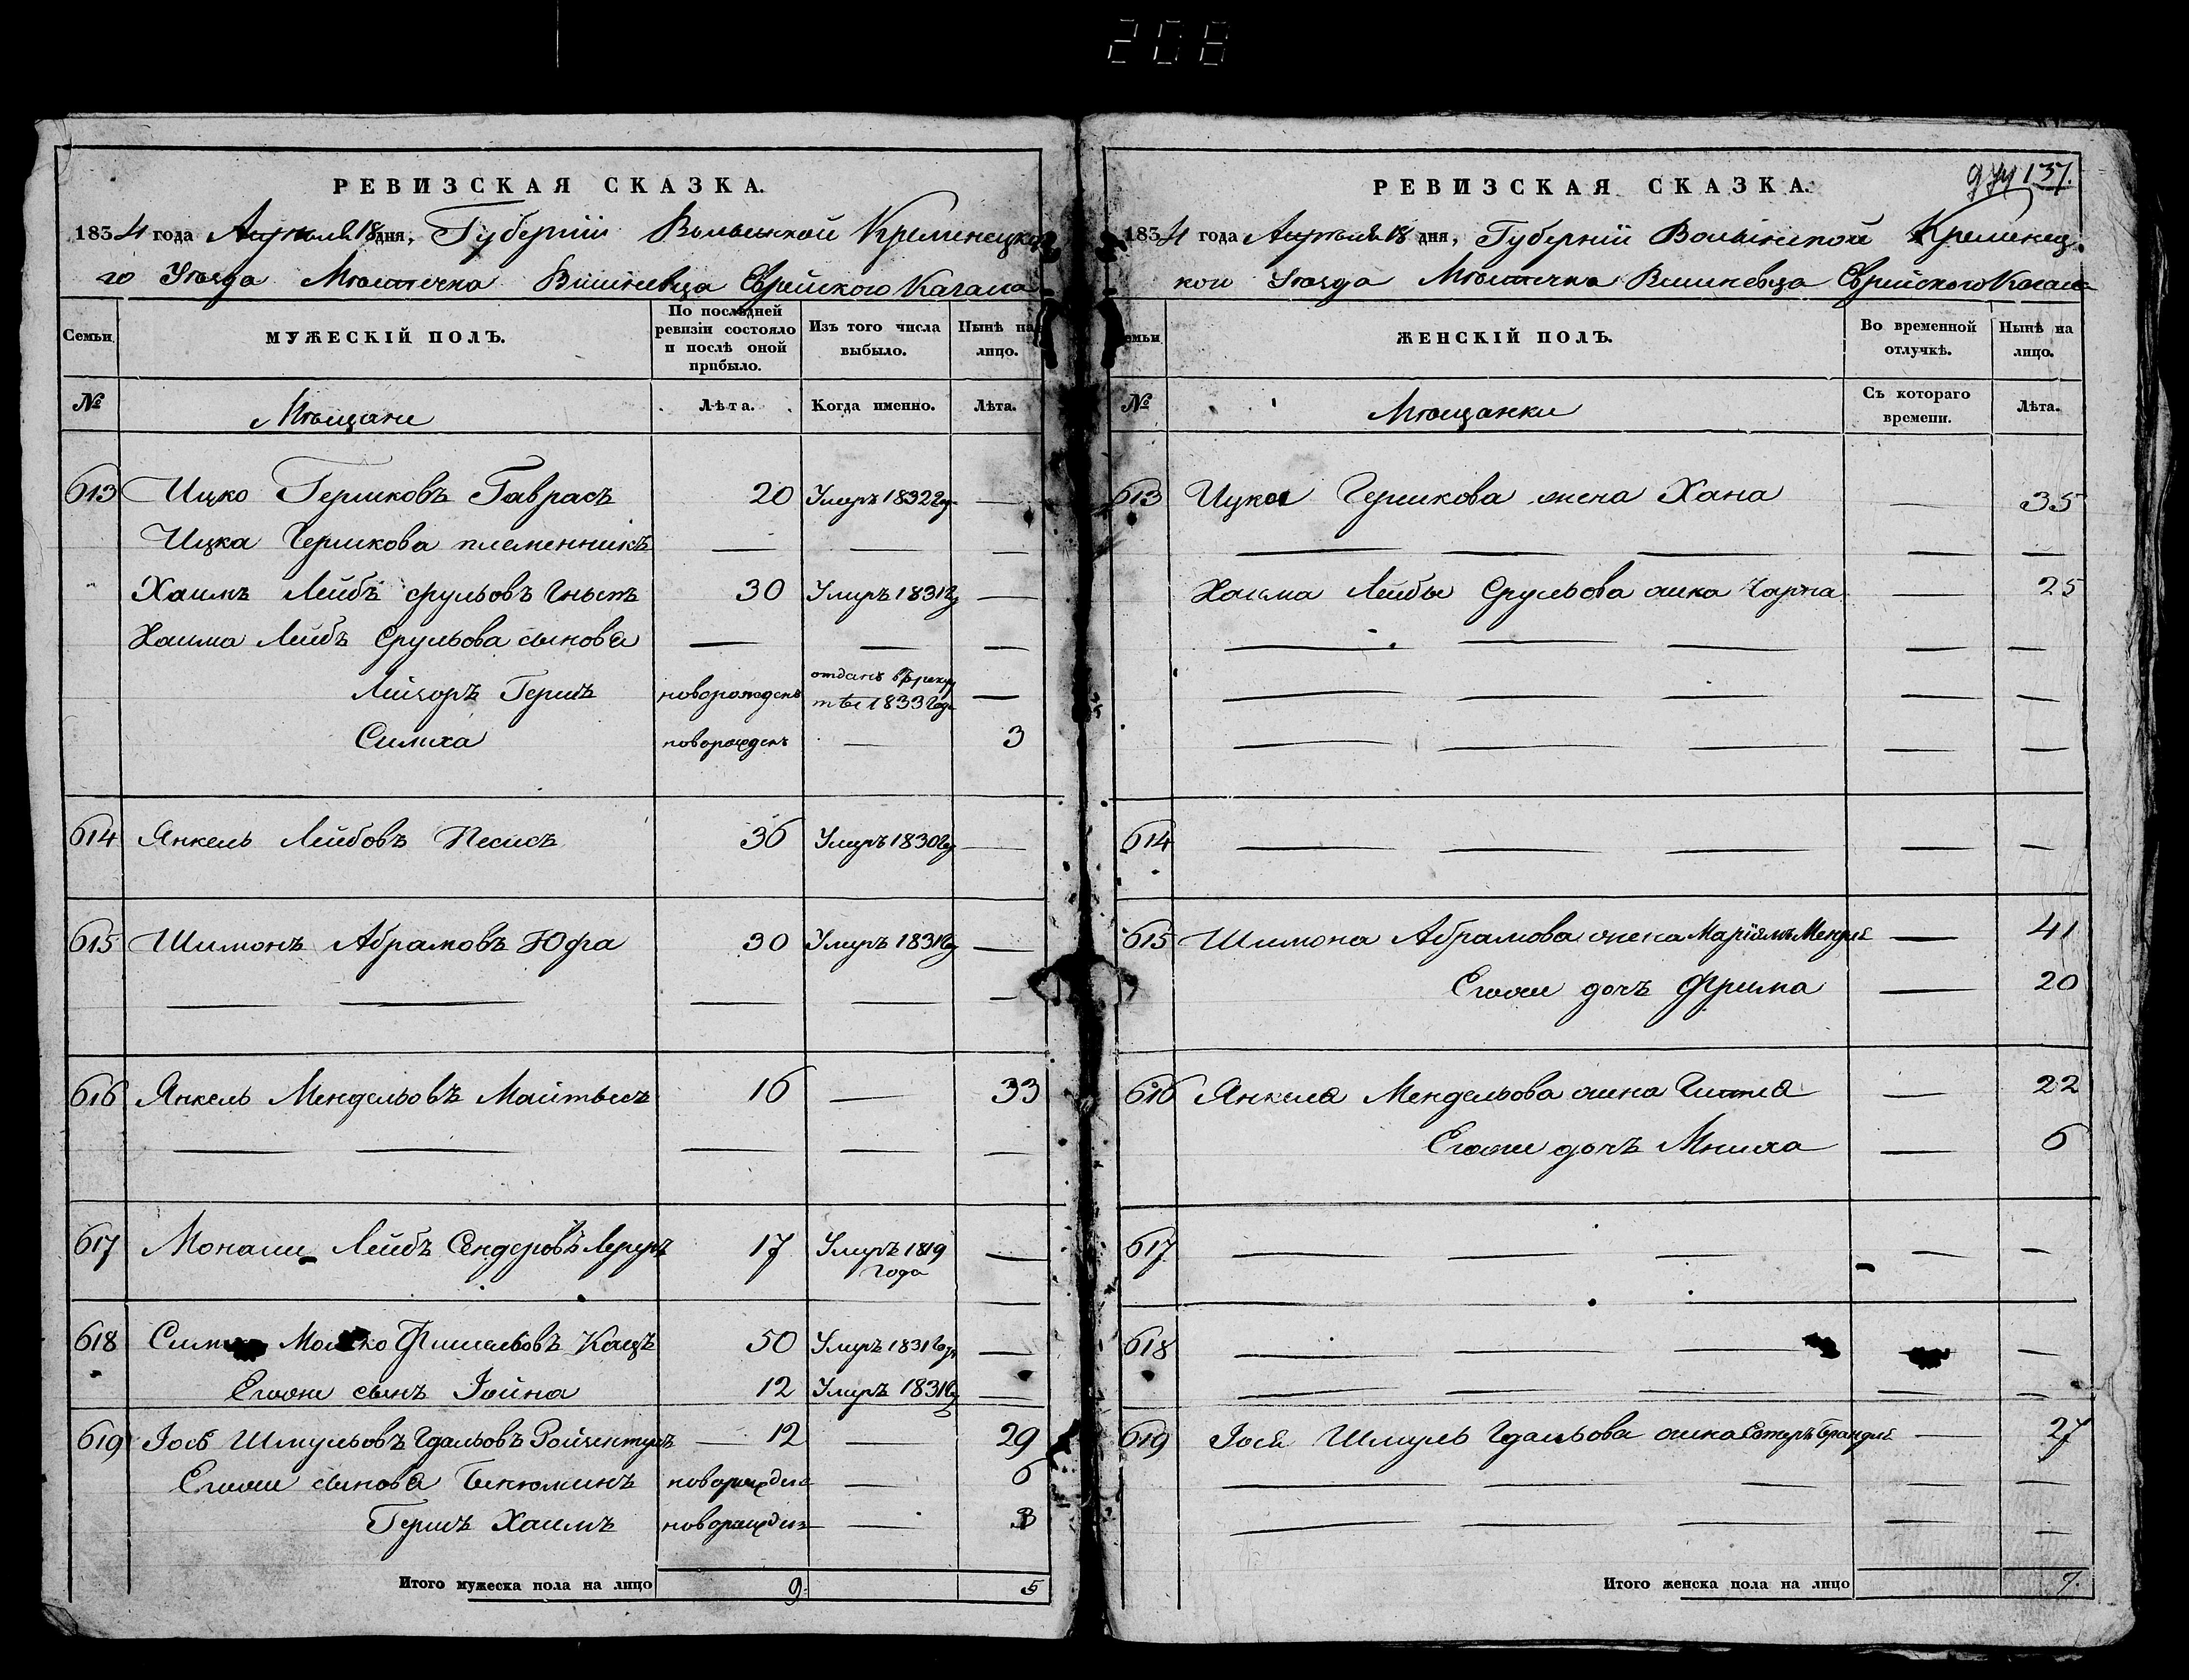 208
РЕВИЗСКАЯ СКАЗКА.
1834 года Апреля 18 дня, Губернiи Волынской Кременецка
го Уѣзда Мѣстечка Вишневца Еврейского Кагала
Семьи
МУЖЕСКІЙ ПОЛЪ.
По последней ревизіи состояло и послѣ оной прибыло.
Изъ того числа выбыло.
Нынѣ на лицо.
№
Мѣщане
Лѣта.
Когда именно.
Лѣта.
613 Ицко Гершковъ Гаврасъ 20 Умеръ 1832 го —
Ицка Гершкова племенникъ — — —
Хаимъ Лейбъ Срульовъ 30 Умеръ 1831 го —
Хаима Лейбъ Срульова сыновя — — —
Лейзоръ Гершъ новорожденъ отданъ в рекру
ты 1833 года —
Симха новорожденъ — 3
614 Янкель Лейбовъ Песисъ 36 Умеръ 1830 го —
615 Шимонъ Абрамовъ Юфа 30 Умеръ 1831 го —
— — — — —
616 Янкель Мендельовъ Майтьесъ 16 — 33
— — — — —
617 Монаши Лейбъ Сендеровъ 17 Умеръ 1819
года —
618 Мошко Фишельовъ Кацъ 50 Умеръ 1831 го —
Егоже сынъ Іойна 12 Умеръ 1831 го —
619 Іосъ Шмульовъ Гдальовъ — 12 — 29
Егоже сыновя Бенюминъ новорожденъ — 6
Гершъ Хаимъ новорожденъ — 3
Итого мужеска пола на лицо 9. 5
137.
РЕВИЗСКАЯ СКАЗКА.
1834 года Апреля 18 дня, Губернiи Волынской Кременец
кои Уѣзда Мѣстечка Вишневца Еврейского Кагала
Семьи
ЖЕНСКІЙ ПОЛЪ.
Во временной отлучкѣ.
Нынѣ на лицо.
№
Мѣщанки
Съ котораго времени.
Лѣта.
613 Ицка Гершкова жена Хана — 35
— — — — —
Хаима Лейбы Срульова жена Чарна — 25
— — — — —
— — — — —
— — — — —
614 — — — — —
615 Шимона Абрамова жена Маріямъ — 41
Егоже дочъ Фрима — 20
616 Янкеля Мендельова жена Гитля — 22
Егоже дочъ Мниха — 6
617 — — — — —
618 — — — — —
— — — — —
619 Іося Шмуль Гдальова жена Естеръ Брандля — 27
— — — — —
— — — — —
Итого женска пола на лицо 7.